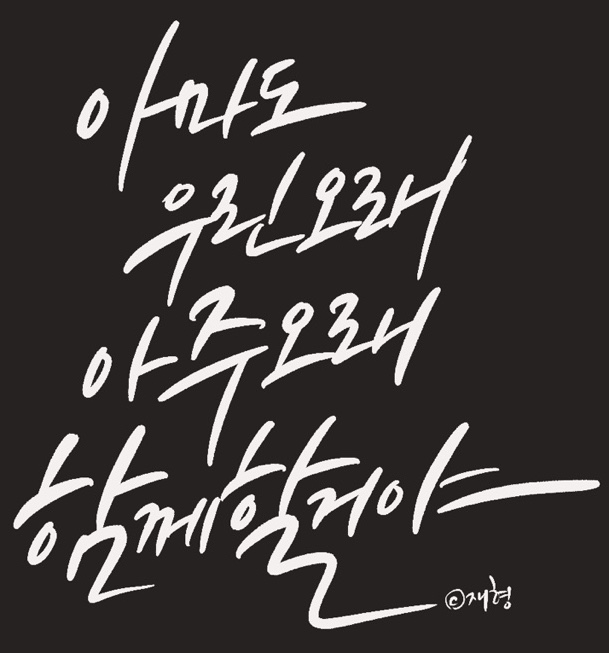 아마도
우린 오래
아주 오래
함께 할 거야
©재형